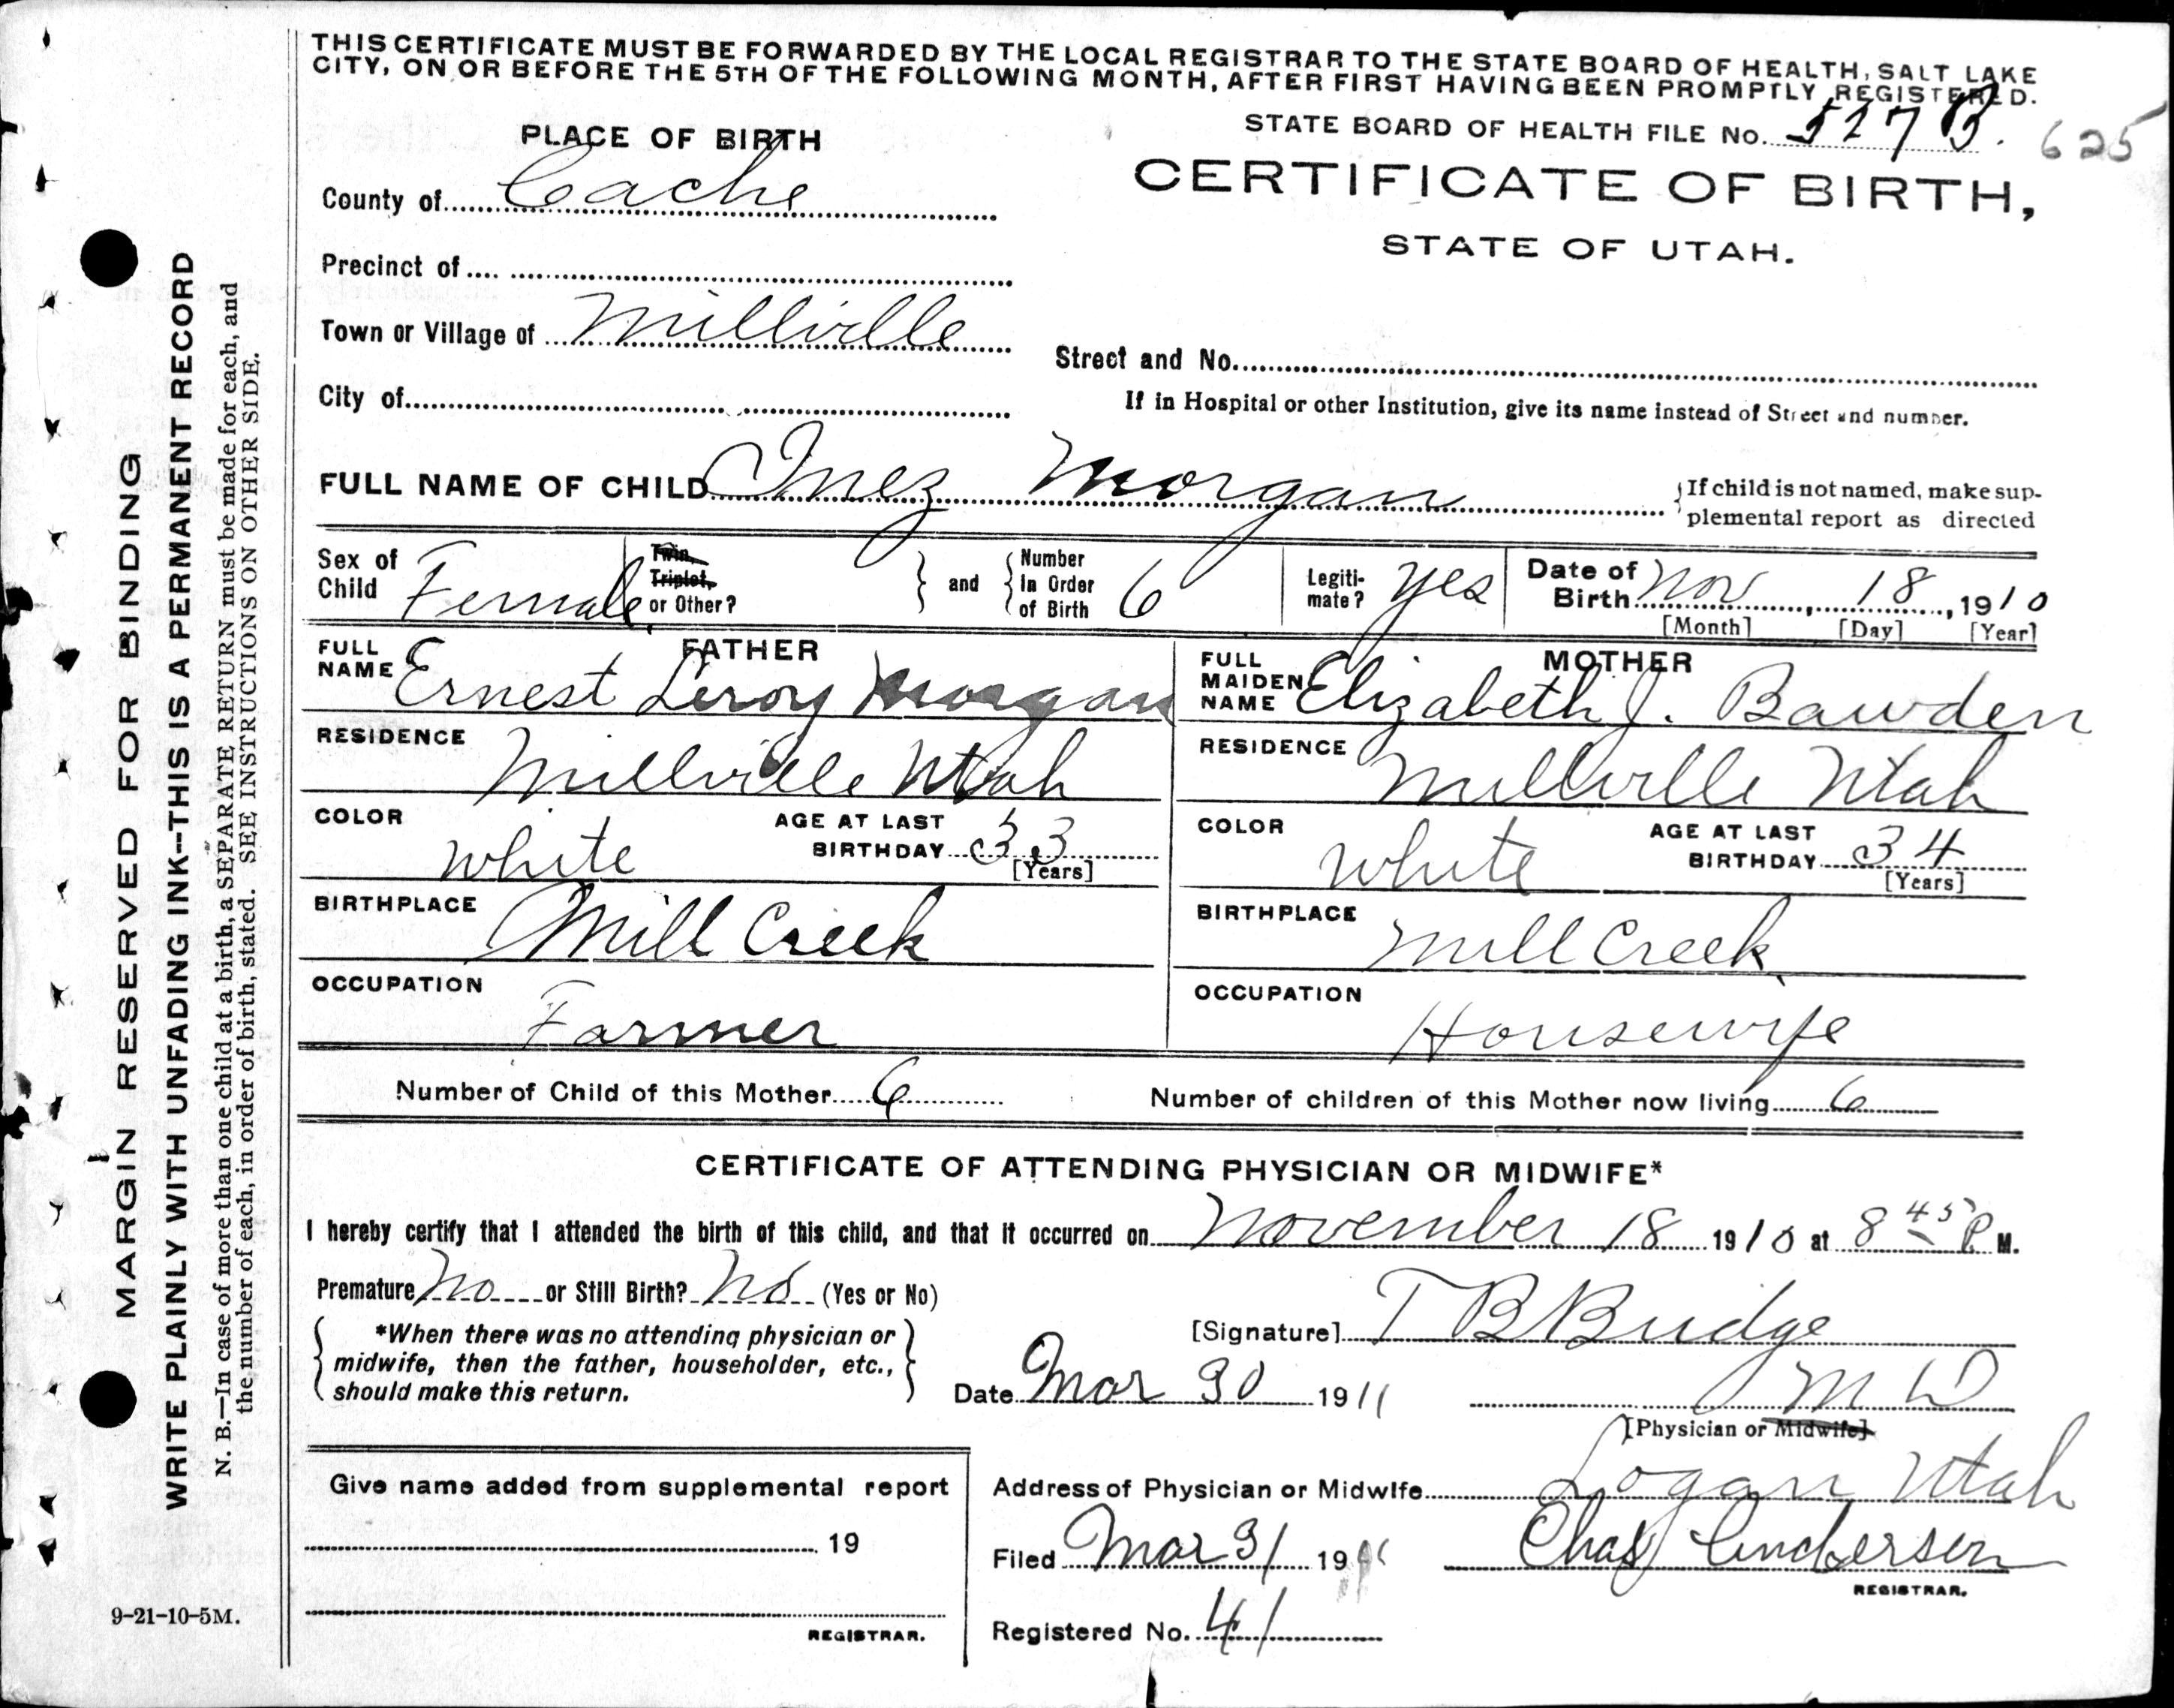 THIS CERTIFICATE MUST BE FORWARDED BY THE LOCAL REGISTRAR TO THE STATE BOARD OF HEALTH, SALT LAKE
CITY, ON OR BEFORE THE 5TH OF THE FOLLOWING MONTH, AFTER FIRST HAVING BEEN PROMPTLY REGISTERED.
STATE BOARD OF HEALTH FILE No. 527 B. 625
PLACE OF BIRTH
CERTIFICATE OF BIRTH,
STATE OF UTAH.
County of Cache
Precinct of
Town or Village of Millville
Street and No.
City of
If in Hospital or other Institution, give its name instead of Street and number.
FULL NAME OF CHILD Inez Morgan
If child is not named, make sup-
plemental report as directed
Sex of Child Female
Twin, Triplet, or Other?
and Number In Order of Birth 6
Legiti- mate? yes
Date of Birth Nov 18, 1910
[Month] [Day] [Year]
FATHER
FULL NAME Ernest Leroy Morgan
MOTHER
FULL MAIDEN NAME Elizabeth J. Bawden
RESIDENCE Millville Utah
RESIDENCE Millville Utah
COLOR White AGE AT LAST BIRTHDAY 33 [Years]
COLOR White AGE AT LAST BIRTHDAY 34 [Years]
BIRTHPLACE Mill Creek
BIRTHPLACE Mill Creek
OCCUPATION Farmer
OCCUPATION Housewife
Number of Child of this Mother 6 Number of children of this Mother now living 6
CERTIFICATE OF ATTENDING PHYSICIAN OR MIDWIFE*
I hereby certify that I attended the birth of this child, and that it occurred on November 18 1910 at 8 45 P M.
Premature No or Still Birth? No (Yes or No)
*When there was no attending physician or
midwife, then the father, householder, etc.,
should make this return.
[Signature] T B Budge
Date Mar 30 1911 M D
[Physician or Midwife]
Give name added from supplemental report
19
REGISTRAR.
Address of Physician or Midwife Logan Utah
Filed Mar 31 1911 Chas Anderson
REGISTRAR.
Registered No. 41
9-21-10-5M.
MARGIN RESERVED FOR BINDING
WRITE PLAINLY WITH UNFADING INK--THIS IS A PERMANENT RECORD
N. B.—In case of more than one child at a birth, a SEPARATE RETURN must be made for each, and
the number of each, in order of birth, stated. SEE INSTRUCTIONS ON OTHER SIDE.